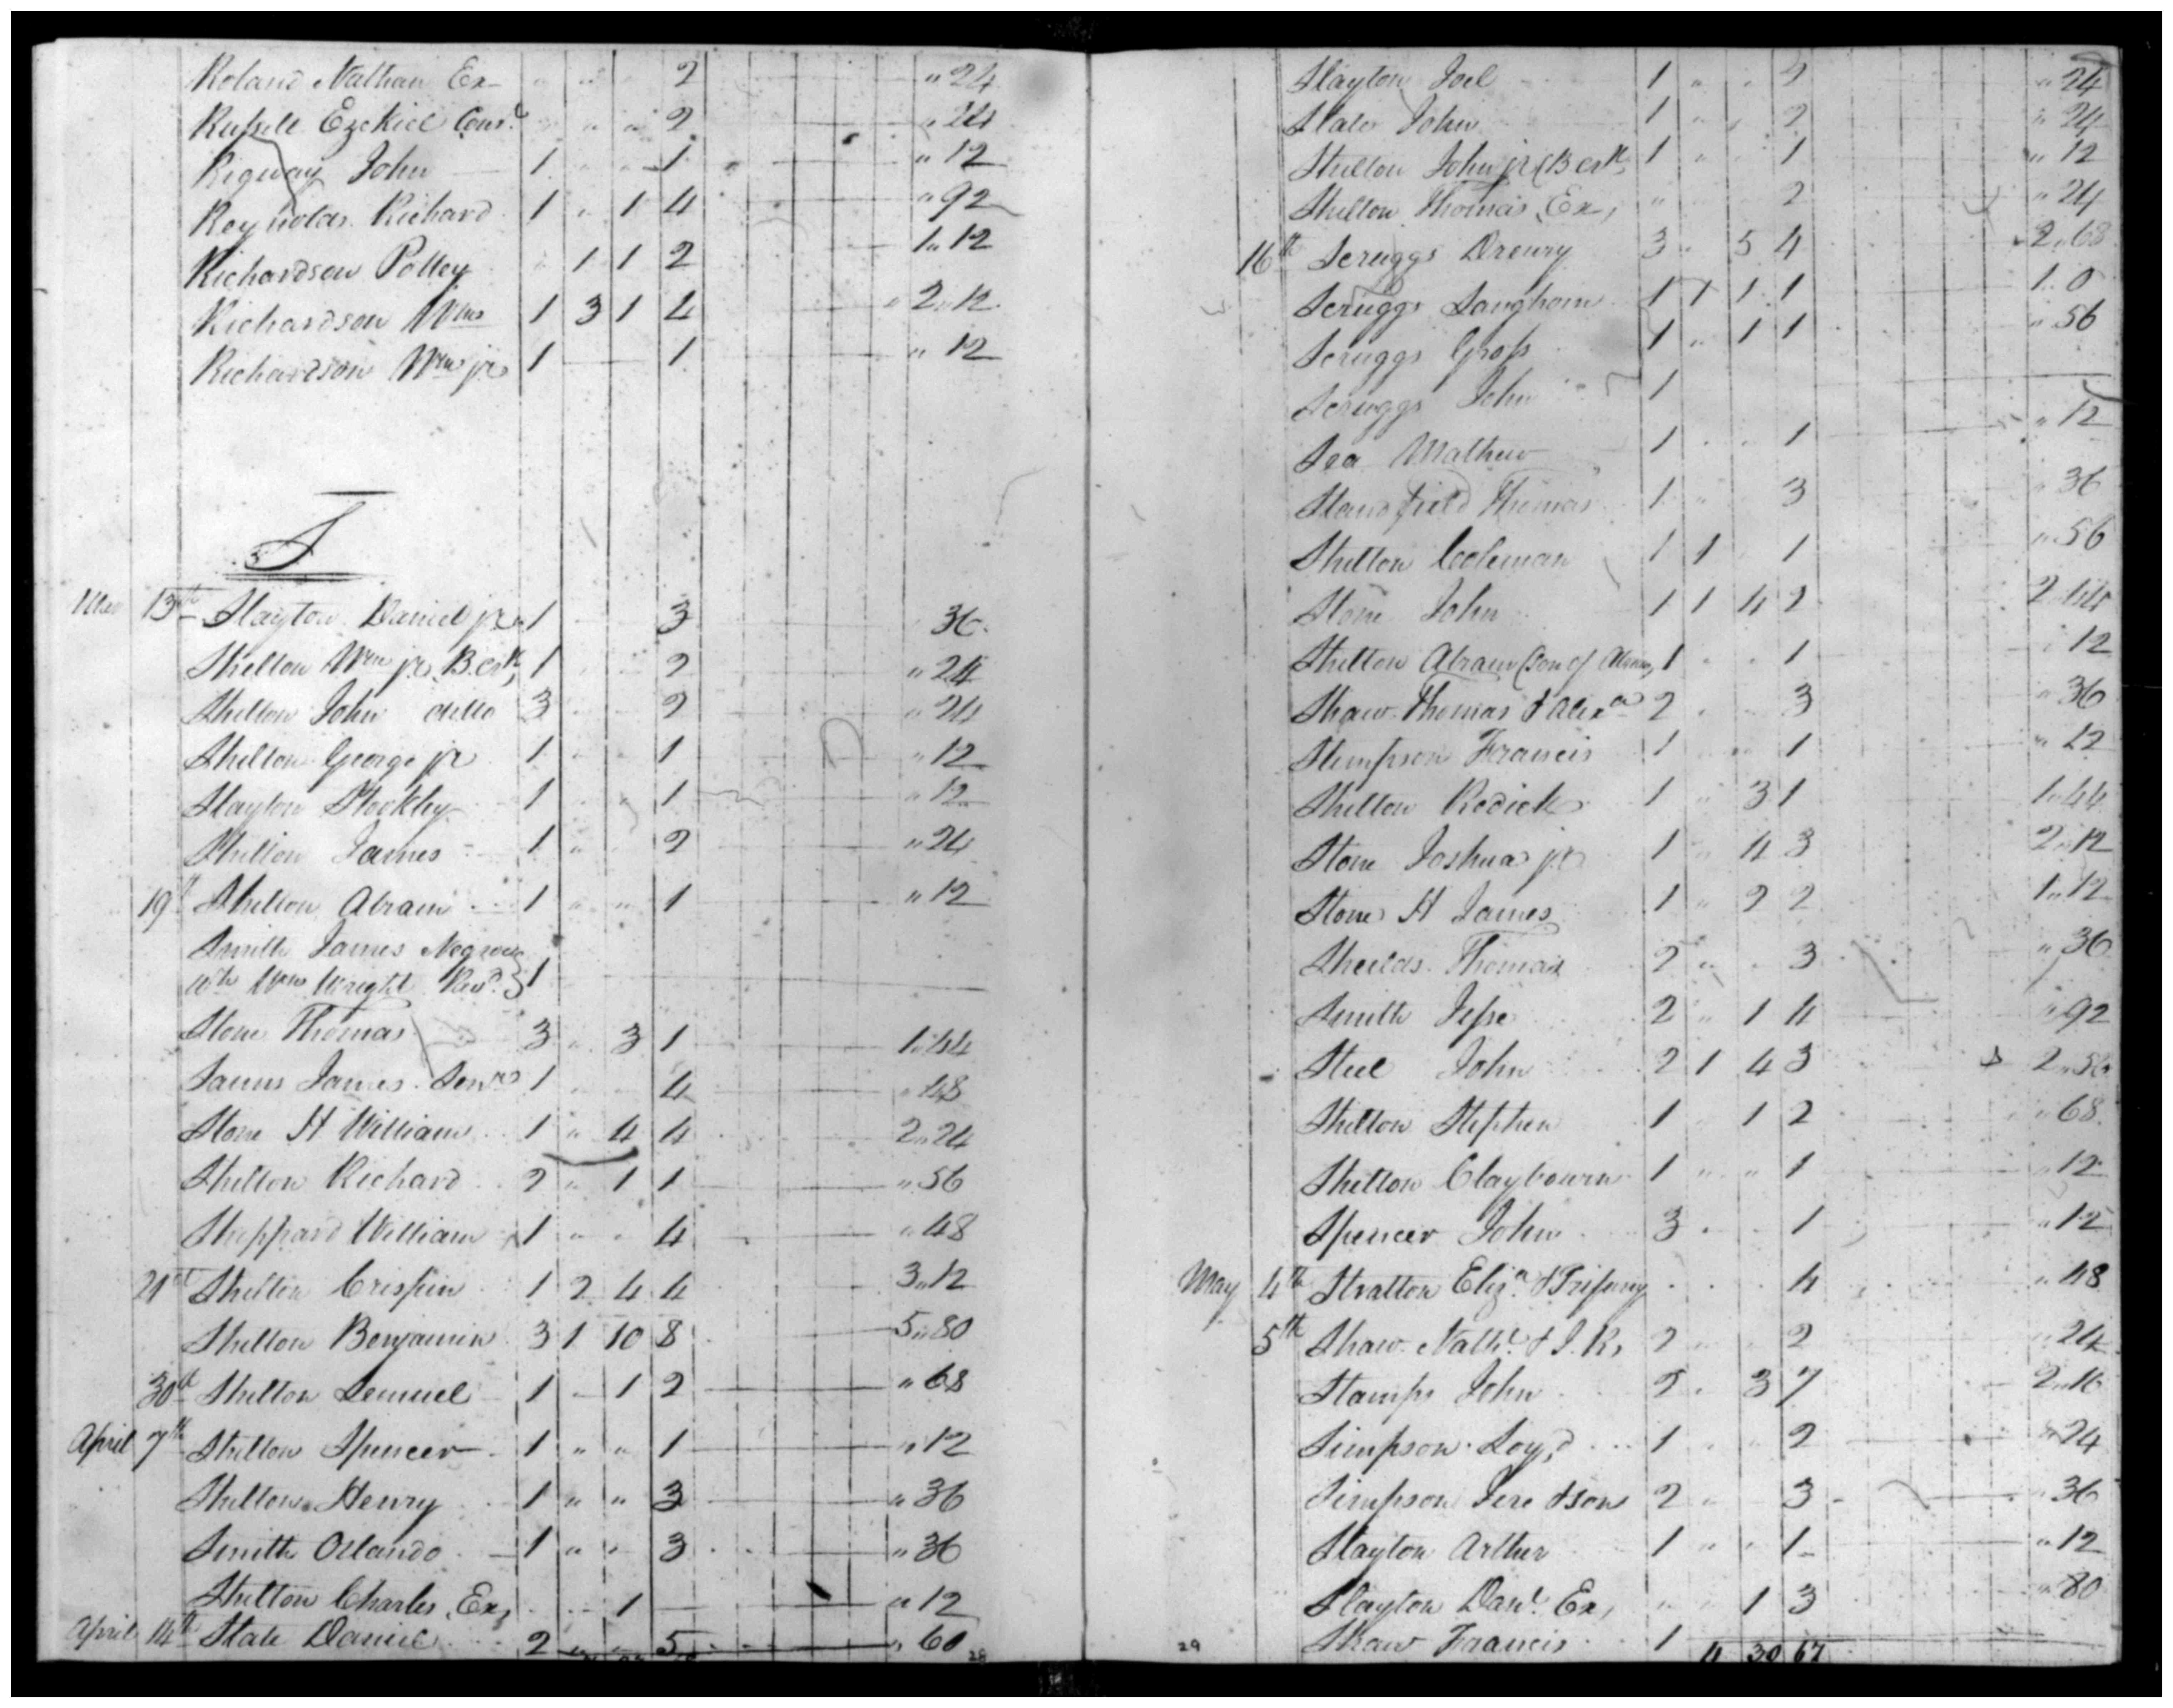 Roland Nathan Ex 2 " 24
Russell Ezekiel Const " " 2 " 24
Rigway John 1 1 " 12
Reynolds Richard 1 " 1 4 " 92
Richardson Polley 1 1 2 1 " 12
Richardson Wm 1 3 1 4 2 " 12
Richardson Wm jr 1 1 " 12
S
Mar 13th Slayton Daniel jr 1 3 36
Shelton Wm jr 1 2 " 24
Shelton John ditto 3 2 " 24
Shelton George jr 1 1 " 12
Slayton Stockley 1 1 " 12
Shelton James 1 " 2 " 24
19th Shelton Abram 1 " " 1 " 12
Smith James Negroes
Wm Wright 1
Stone Thomas 3 " 3 1 1 " 44
James 1 4 " 48
Stone H William 1 " 4 4 2 " 24
Shelton Richard 2 " 1 1 " 56
Sheppard William 1 " " 4 " 48
21st Shelton Crispin 1 2 4 4 3 " 12
Shelton Benjamin 3 1 10 8 5 " 80
30th Shelton Lemuel 1 1 2 " 68
April 7th Shelton Spencer 1 " " 1 " 12
Shelton Henry 1 " " 3 " 36
Smith Orlando 1 " " 3 " 36
Shelton Charles Ex 1 " 12
April 14th Slate Daniel 2 " " 5 " 60
28
Slayton Joel 1 " " 2 " 24
Slate John 1 2 " 24
Shelton John jr 1 " 1 " 12
Shelton Thomas Ex " 2 " 24
16th Scruggs Dreury 3 " 5 4 2 " 68
Scruggs Langhorn 1 1 1 1 1 " 0
Scruggs Gross 1 " 1 1 " 56
Scruggs John 1
Sea Mathew 1 1 " 12
Stansfield Thomas 1 " 3 " 36
Shelton Coleman 1 1 1 " 56
Stone John 1 1 4 2
Shelton Abram (son of Abram) 1 1 12
Shaw Thomas & Alexa 2 3 " 36
Simpson Francis 1 " 1 " 12
Shelton Rodick 1 " 3 1 1 " 44
Stone Joshua jr 1 " 4 3 2 " 12
Stone H James 1 " 2 2 1 " 12
Sheilds Thomas 2 " 3 " 36
Smith Jesse 2 " 1 4 " 92
Steel John 2 1 4 3 2 " 56
Shelton Stephen 1 1 2 " 68
Shelton Claybourn 1 " " 1 " 12
Spencer John 3 1 " 12
May 4th Stratton Eliza & 4 " 48
5th Shaw Nathl & J. R. 2 2 " 24
Stamps John 2 " 3 7 2 " 16
Simpson Loyd 1 2 " 24
Simpson Jere & son 2 " 3 " 36
Slayton Arther 1 " " 1 " 12
Slayton Danl Ex " 1 3 " 80
Shaw Francis 1
29 4 30 67